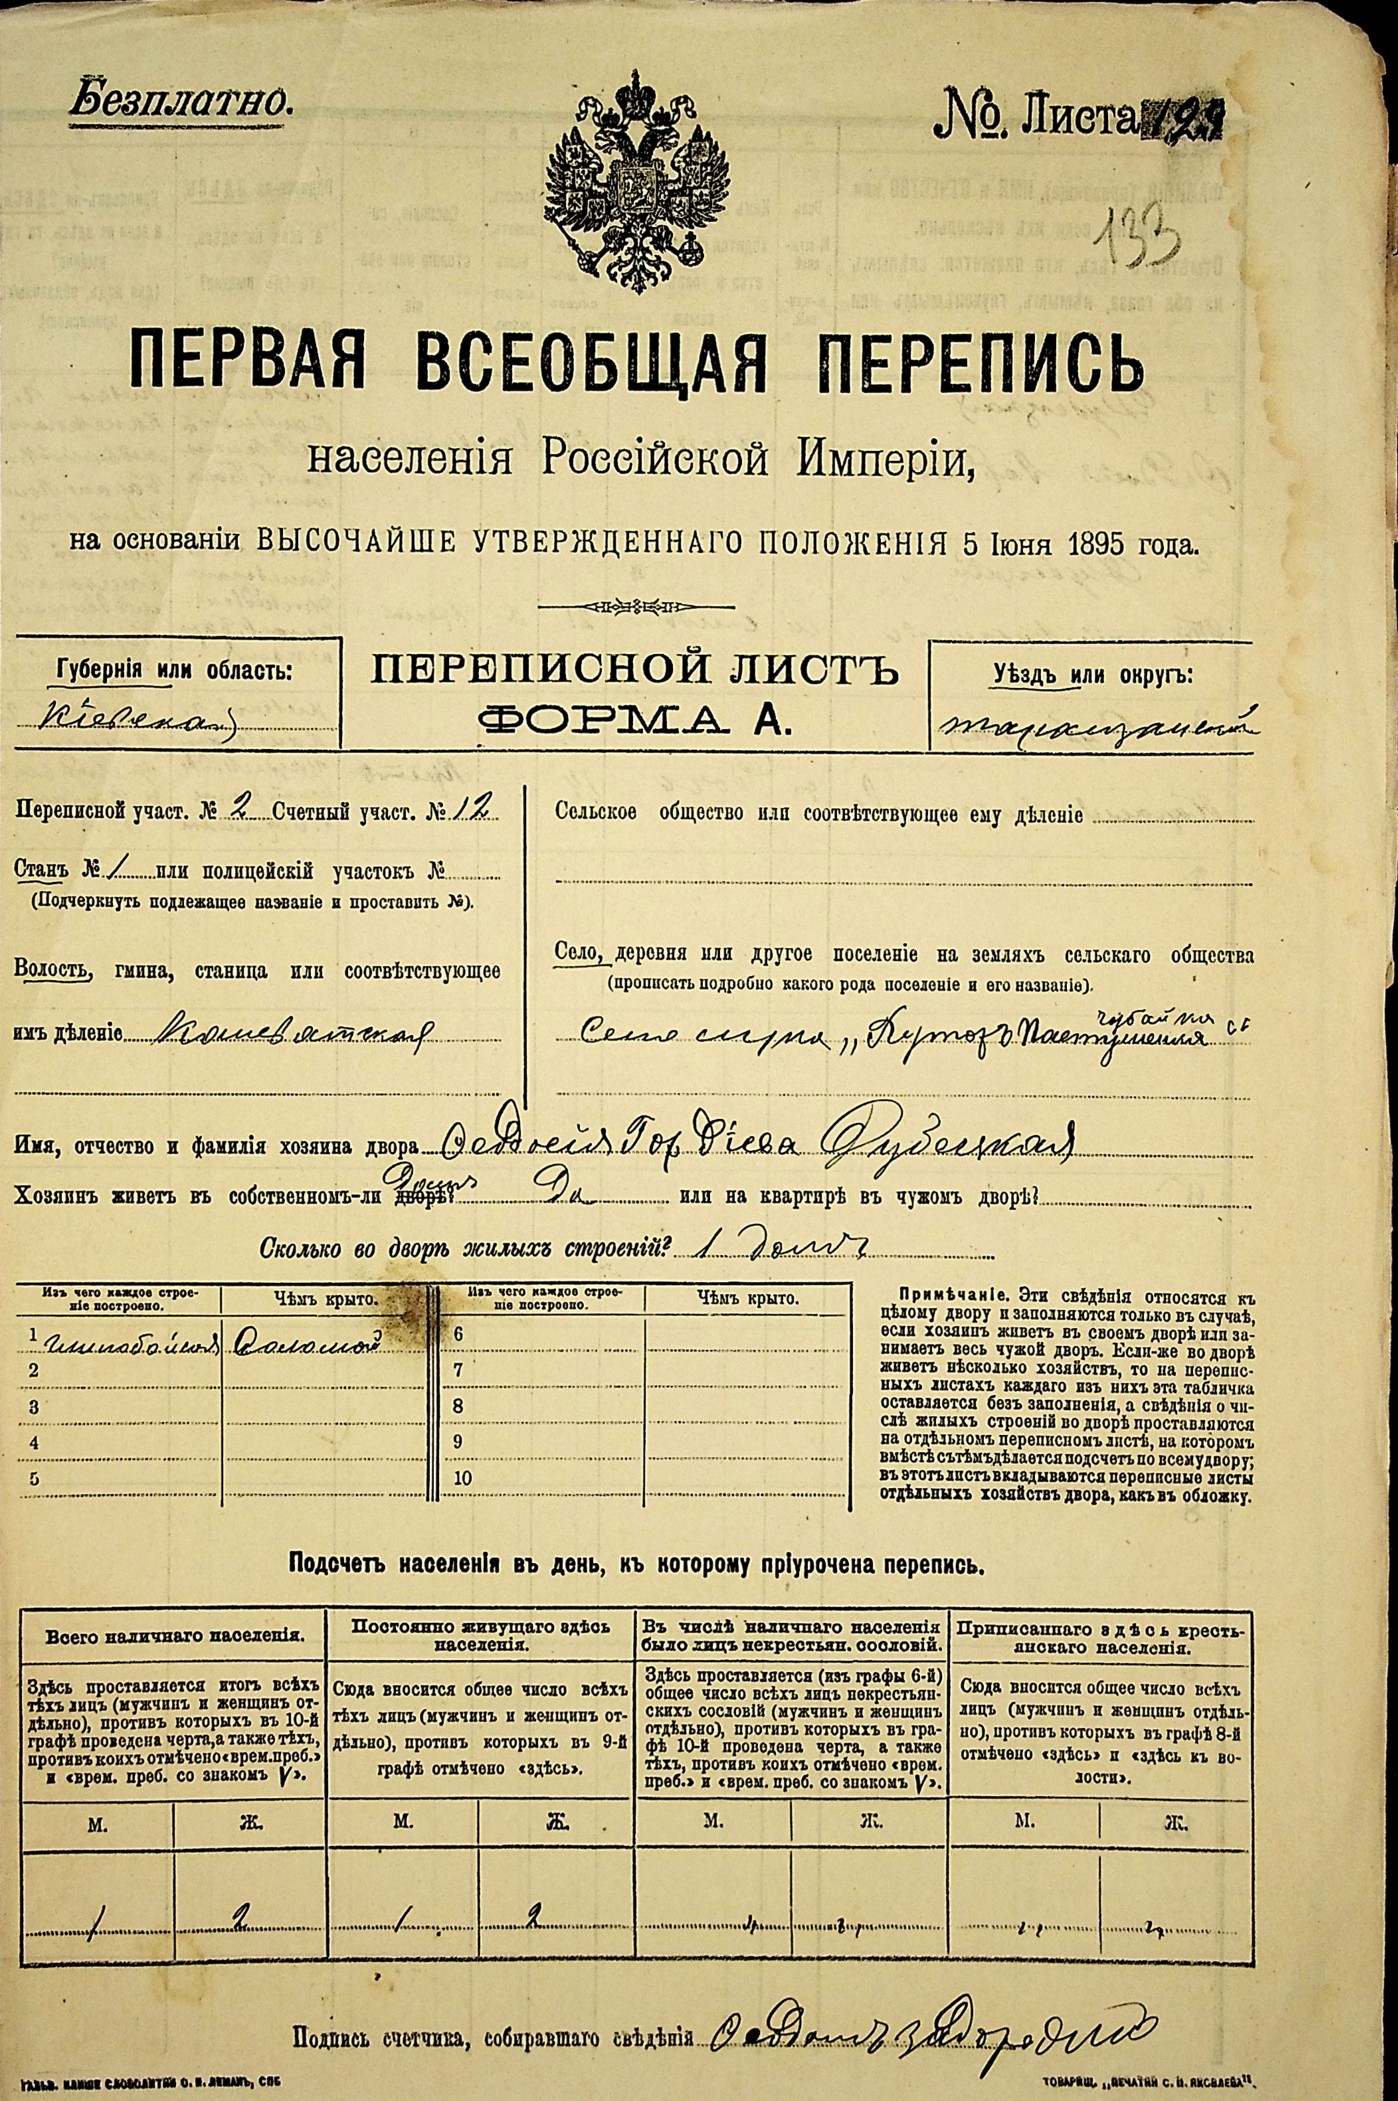 Безплатно.
№. Листа 129
133
ПЕРВАЯ ВСЕОБЩАЯ ПЕРЕПИСЬ
населенія Россійской Имперіи,
на основаніи ВЫСОЧАЙШЕ УТВЕРЖДЕННАГО ПОЛОЖЕНІЯ 5 Іюня 1895 года.
Губернія или область:
Кіевская
ПЕРЕПИСНОЙ ЛИСТЪ
ФОРМА А.
Уѣздъ или округъ:
Таращанскій
Переписной участ. № 2 Счетный участ. № 12
Станъ № 1 или полицейскій участокъ №
(Подчеркнуть подлежащее названіе и проставить №).
Волость, гмина, станица или соотвѣтствующее
имъ дѣленіе Коневатская
Сельское общество или соотвѣтствующее ему дѣленіе
Село, деревня или другое поселеніе на земляхъ сельскаго общества
(прописать подробно какого рода поселеніе и его названіе).
Имя, отчество и фамилія хозяина двора Феодосія Гордіева Дубецкая
Хозяинъ живетъ въ собственномъ-ли дворѣ? Домъ Да или на квартирѣ въ чужомъ дворѣ?
Сколько во дворѣ жилыхъ строеній? 1 домъ
Изъ чего каждое строе-
ніе построено.
Чѣмъ крыто.
Изъ чего каждое строе-
ніе построено.
Чѣмъ крыто.
1 Соломой 6
2 7
3 8
4 9
5 10
Примѣчаніе. Эти свѣдѣнія относятся къ
цѣлому двору и заполняются только въ случаѣ,
если хозяинъ живетъ въ своемъ дворѣ или за-
нимаетъ весь чужой дворъ. Если-же во дворѣ
живетъ нѣсколько хозяйствъ, то на перепис-
ныхъ листахъ каждаго изъ нихъ эта табличка
оставляется безъ заполненія, а свѣдѣнія о чи-
слѣ жилыхъ строеній во дворѣ проставляются
на отдѣльномъ переписномъ листѣ, на которомъ
вмѣстѣ съ тѣмъ дѣлается подсчетъ по всему двору;
въ этотъ листъ вкладываются переписные листы
отдѣльныхъ хозяйствъ двора, какъ въ обложку.
Подсчетъ населенія въ день, къ которому пріурочена перепись.
Всего наличнаго населенія.
Постоянно живущаго здѣсь
населенія.
Въ числѣ наличнаго населенія
было лицъ некрестьян. сословій.
Приписаннаго здѣсь кресть-
янскаго населенія.
Здѣсь проставляется итогъ всѣхъ
тѣхъ лицъ (мужчинъ и женщинъ от-
дѣльно), противъ которыхъ въ 10-й
графѣ проведена черта, а также тѣхъ,
противъ коихъ отмѣчено «врем. преб.»
и «врем. преб. со знакомъ V».
Сюда вносится общее число всѣхъ
тѣхъ лицъ (мужчинъ и женщинъ от-
дѣльно), противъ которыхъ въ 9-й
графѣ отмѣчено «здѣсь».
Здѣсь проставляется (изъ графы 6-й)
общее число всѣхъ лицъ некрестьян-
скихъ сословій (мужчинъ и женщинъ
отдѣльно), противъ которыхъ въ гра-
фѣ 10-й проведена черта, а также
тѣхъ, противъ коихъ отмѣчено «врем.
преб.» и «врем. преб. со знакомъ V».
Сюда вносится общее число всѣхъ
лицъ (мужчинъ и женщинъ отдѣль-
но), противъ которыхъ въ графѣ 8-й
отмѣчено «здѣсь» и «здѣсь къ во-
лости».
М. Ж. М. Ж. М. Ж. М. Ж.
1 2 1 2
Подпись счетчика, собиравшаго свѣдѣнія
ГАЛЬВ. КЛИШЕ СЛОВОЛИТНИ О. И. ЛЕМАНЪ, СПБ
ТОВАРИЩ. „ПЕЧАТНИ С. П. ЯКОВЛЕВА".